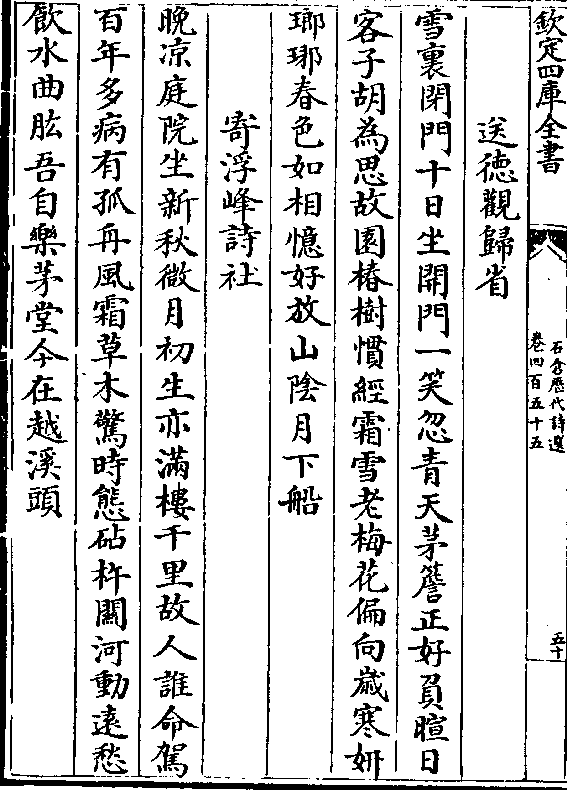 欽定四庫全書
石倉歷代詩選
卷四百五十五
五十
送德觀歸省
雪裏閉門十日坐開門一笑忽青天茅簷正好負暄日
客子胡為思故園椿樹慣經霜雪老梅花偏向歲寒妍
瑯琊春色如相憶好放山陰月下船
寄浮峰詩社
晚凉庭院坐新秋微月初生亦滿樓千里故人誰命駕
百年多病有孤舟風霜草木驚時態砧杵關河動遠愁
飲水曲肱吾自樂茅堂今在越溪頭